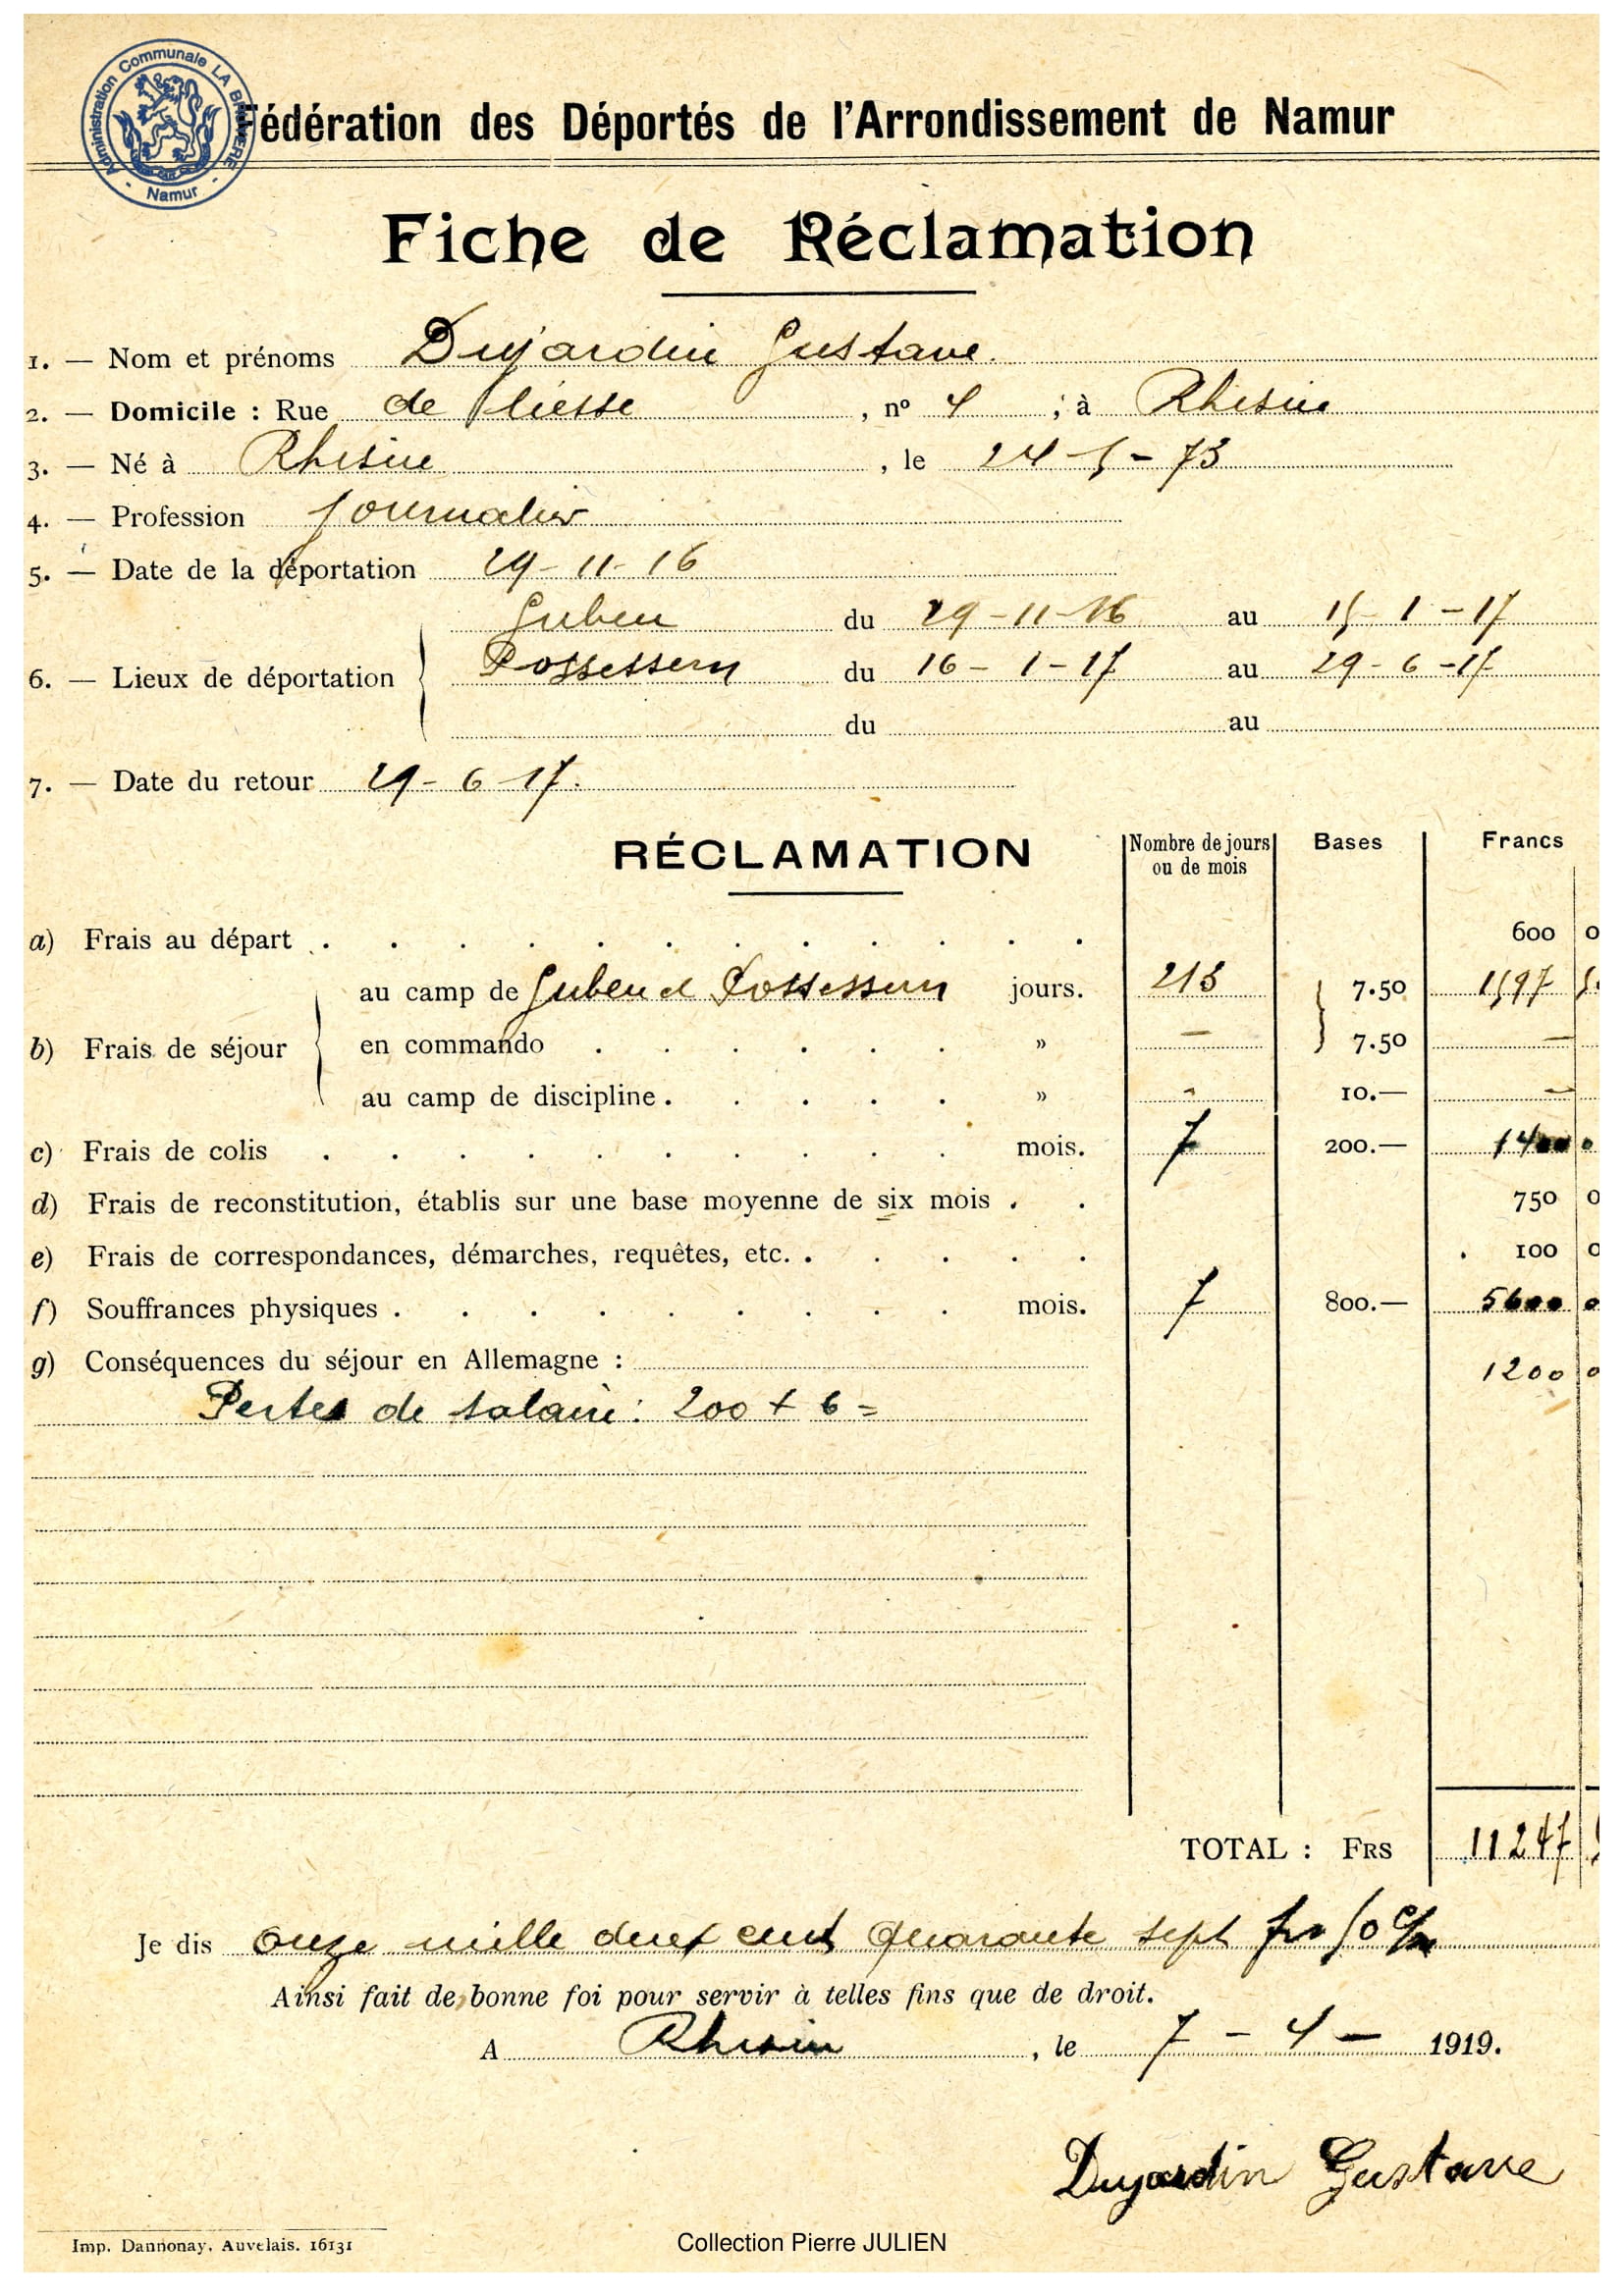 Administration Communale LA BRUYERE
- Namur -
Fédération des Déportés de l'Arrondissement de Namur
Fiche de Réclamation
1. — Nom et prénoms Dujardin Gustave
2. — Domicile : Rue de , n° 4 ; à Rhisne
3. — Né à Rhisne , le 24-5-73
4. — Profession Journalier
5. — Date de la déportation 29-11-16
Guben du 29-11-16 au 15-1-17
6. — Lieux de déportation Possessern du 16-1-17 au 29-6-17
du au
7. — Date du retour 29-6-17.
RÉCLAMATION Nombre de jours ou de mois Bases Francs
a) Frais au départ . . . . . . . . . . . . 600 0
au camp de Guben et Possessern jours. 213 7.50 1597 5
b) Frais de séjour en commando . . . . . . » — 7.50 —
au camp de discipline . . . . . » - 10.— —
c) Frais de colis . . . . . . . . . . mois. 7 200.— 1400 0
d) Frais de reconstitution, établis sur une base moyenne de six mois . . 750 0
e) Frais de correspondances, démarches, requêtes, etc. . . . . . 100 0
f) Souffrances physiques . . . . . . . . . mois. 7 800.— 5600 0
g) Conséquences du séjour en Allemagne : 1200 0
Pertes de salaire : 200 + 6 =
TOTAL : FRS 11247 5
Je dis onze mille deux cent quarante sept frs 50 c/m
Ainsi fait de bonne foi pour servir à telles fins que de droit.
A Rhisne , le 7 - 4 - 1919.
Dujardin Gustave
Imp. Dannonay, Auvelais. 16131
Collection Pierre JULIEN